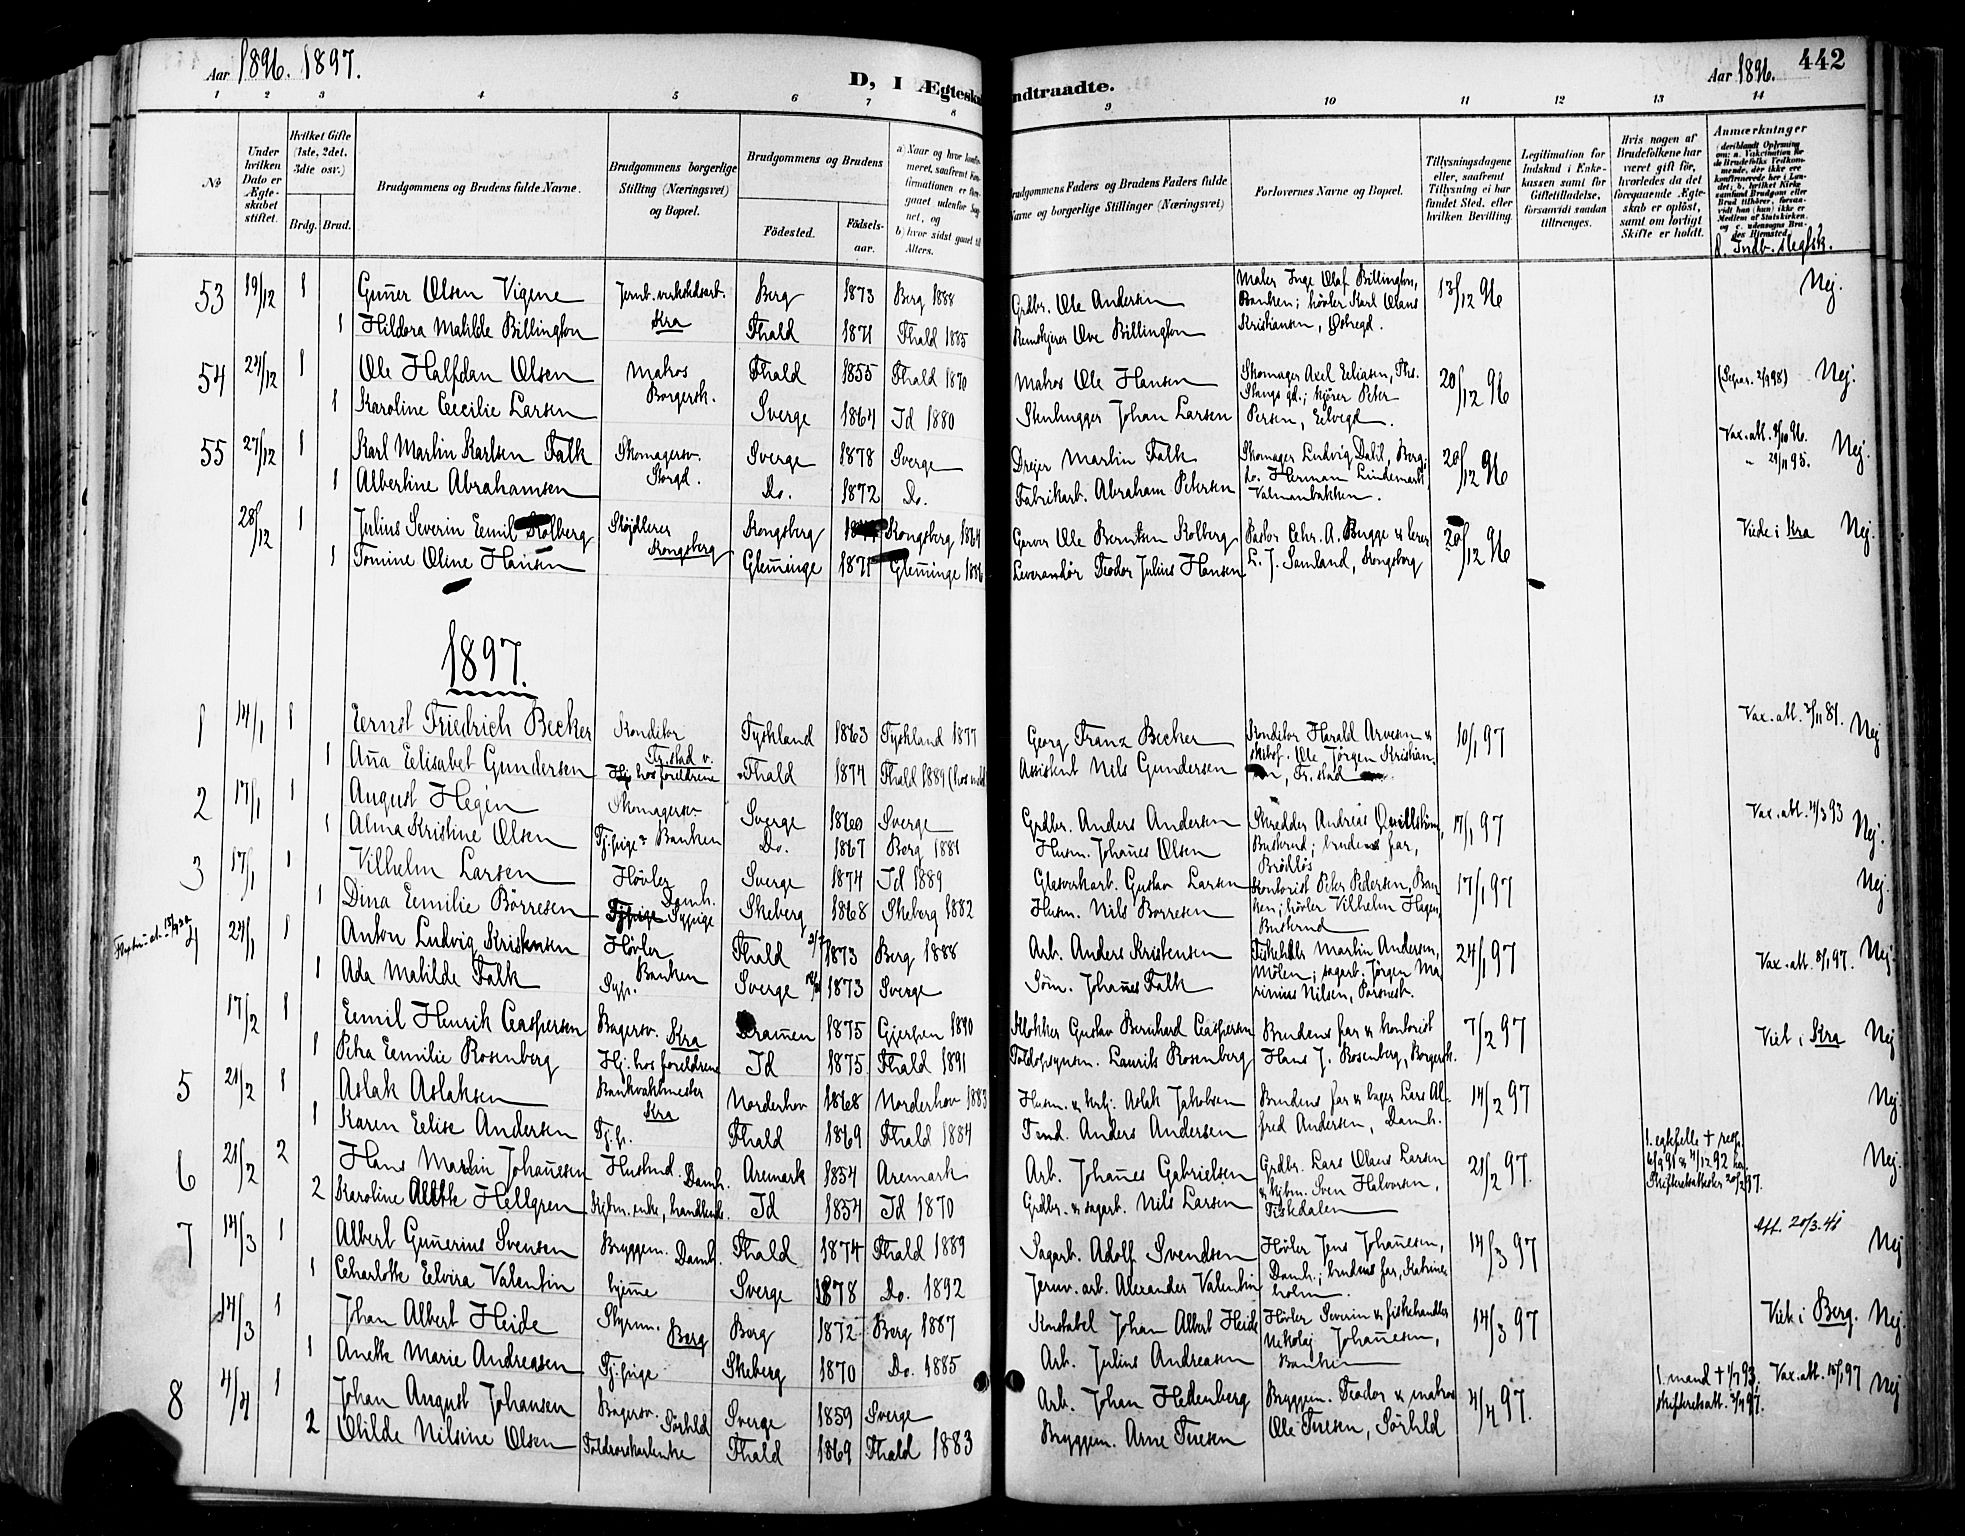 Aar 1896. 1897.
D, I Ægtesk
ndtraadte.
Aar 1896.
442
1 2 3 4 5 6 7 8 9 10 11 12 13 14
No
Under hvilken Dato er Ægteskabet stiftet.
Hvilket Gifte (1ste, 2det, 3die osv.)
Brdg. Brud.
Brudgommens og Brudens fulde Navne.
Brudgommens borgerlige Stilling (Næringsvei) og Bopæl.
Brudgommens og Brudens
Fødested.
Fødselsaar.
Forlovernes Navne og Bopæl.
Tillysningsdagene eller, saafremt Tillysning ei har fundet Sted, efter hvilken Bevilling.
Legitimation for Indskud i Enkekassen samt for Giftetilladelse, forsaavidt saadan tiltrænges.
Hvis nogen af Brudefolkene har været gift før, hvorledes da det foregaaende Ægteskab er opløst, samt om lovligt Skifte er holdt.
Anmærkninger
53 19/12 1 Guñer Olsen Vigene Jernb. verkstedsarb. Berg 1873 Berg 1888 Grdbr. Ole Andersen Maler Inge Olaf Billington, Banken; høvler Karl Olaus 13/12 96 Nej.
1 Hildora Matilde Billington Kra Fhald 1871 Fhald 1885 Remskjærer Ove Billington Kristiansen, Østregd.
54 24/12 1 Ole Halfdan Olsen Matros Fhald 1855 Fhald 1870 Matros Ole Hansen Skomager Axel Eliasen, Ths. Stangs gd.; kjører Peter 20/12 96 (Separ. 2/9 98) Nej.
1 Karoline Cecilie Larsen Borgersk. Sverge 1864 Id 1880 Stenhugger Johan Larsen Persen, Eilvegd.
55 27/12 1 Karl Martin Karlsen Falk Skomagersv. Sverge 1878 Sverge Drejer Martin Falk Skomager Ludvig Dahl, Berg; 20/12 96 Vax. att. 9/10 96. Nej.
1 Albertine Abrahamsen Storgd. Do. 1872 Do. Fabrikarb. Abraham Petersen do. Herman Lindemark, Valmanbakken. " 21/11 95.
28/12 1 Julius Severin Emil Kolberg Sløjdlærer Kongsberg Kongsberg 1864 Garver Ole Berntsen Kolberg Pastor Chr. A. Bugge & lærer 20/12 96 Viede i Kra Nej.
1 Tomine Oline Hansen Kongsberg Gleminge 1871 Gleminge 1886 Leverandør Teodor Julius Hansen L. J. Samland, Kongsberg
1897.
1 14/1 1 Ernst Friedrich Becker Konditor Tyskland 1863 Tyskland 1877 Georg Franz Becker Konditor Harald Arvesen & 10/1 97 Vax. att. 3/11 81. Nej
1 Aña Elisabet Gundersen Fr.stad v. Hj. hos forældrene Fhald 1874 Fhald 1889 Assistent Nils Gundersen Ole Jørgen Kristian Fr. stad
2 17/1 1 August Hegén Skomagersv Sverge 1860 Sverge Grdbr. Anders Andersen Skredder Andreas Qvillström, 17/1 97 Vax. att. 4/3 93 Nej.
1 Alma Kristine Olsen Tj. pige Banken Do. 1867 Berg 1881 Husm. Johañes Olsen Buskrud; brudens far, Brödlös
3 17/1 1 Vilhelm Larsen Høvler Sverge 1874 Id 1889 Glasverkarb. Gustav Larsen Kontorist Peter Pedersen, Ban 17/1 97 Nej.
1 Dina Emilie Børresen Damh. Sypige Skeberg 1868 Skeberg 1882 Husm. Nils Børresen ken; høvler Vilhelm Hagen, Buskrud
4 24/1 1 Anton Ludvig Kristensen Høvler Fhald 1873 Berg 1888 Arb. Anders Kristensen Fiskehdlr. Martin Andersen, 24/1 97 Vax. att. 8/1 97. Nej.
1 Ada Matilde Falk Banken Syp. Sverge 1873 Sverge Søm. Johañes Falk Mölen; sagarb. Jørgen Marinius Nilsen,
17/2 1 Emil Henrik Caspersen Bagersv. Kra Dramen 1875 Gjerpen 1890 Klokker Gustav Bernhard Caspersen Brudens far & kontorist 7/2 97 Viet i Kra Nej
1 Petra Emilie Rosenberg Hj. hos forældrene Id 1875 Fhald 1891 Toldopsynsm. Laurits Rosenberg Hans J. Rosenberg, Borgersk.
5 21/2 1 Aslak Aslaksen Bankvaktmester Norderhov 1868 Norderhov 1883 Husm. & kirkj. Aslak Jakobsen Brudens far & bager Lars Al- 14/2 97 Nej.
1 Karen Elise Andersen Kra Tj. p. Fhald 1869 Fhald 1884 Tend. Anders Andersen fred Andersen, Damh.
6 21/2 2 Hans Martin Johañesen Hustmd. Damh. Aremark 1854 Aremark Arb. Johañes Gabrielsen Grdbr. Lars Olaus Larsen 21/2 97. 1. egtefelle † resp. 6/9 91 & 4/12 92 Skifteretsattester 20/2 97. Nej.
2 Karoline Alette Hellgren Kjbm. enke, handlende. Id 1854 Id 1870 Grdbr. & sagarb. Nils Larsen & kjbm. Sven Halvorsen, Tistedalen
7 14/3 1 Albert Guñerius Svensen Bryggem. Damh. Fhald 1874 Fhald 1889 Sagarb. Adolf Svendsen Høvler Jens Johañesen, 14/3 97 Att. 20/3.41 Nej
1 Charlotte Elvira Valentin hjeme Sverge 1878 Do. 1892 Jernv. arb. Alexander Valentin Damh.; brudens far, Katrineholm.
14/3 1 Johan Albert Heide Styrm. Berg Berg 1872 Berg 1887 Konstabel Johan Albert Heide Høvler Severin & fiskehandler 14/3 97 Viet i Berg. Nej.
1 Anette Marie Andreasen Tj. pige Skeberg 1870 Do. 1885 Arb. Julius Andreasen Nikolaj Johañesen, Banken
8 4/4 1 Johan August Johansen Bagersv. Sørhld Sverge 1859 Sverge Arb. Johan Hedenberg Bryggem. Teodor & matros 4/4 97. 1. mand † 1/7 93; skifteretsatt. 3/4 97. Vax. att. 15/1 97 Nej
2 Othilde Nilsine Olsen Toldrorskarlenke Fhald 1869 Fhald 1883 Bryggem. Arne Turesen Ole Turesen, Sørhld